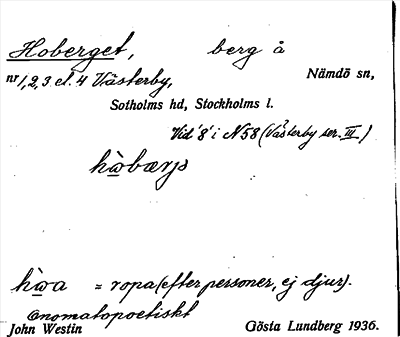 Hoberget, berg å
nr 1, 2, 3 el. 4 Västerby, Nämdö sn,
Sotholms hd, Stockholms l.
Vid '8' i N58 (Västerby ser. III)
?
= ropa (efter personer, ej djur).
Onomatopoetiskt
John Westin Gösta Lundberg 1936.